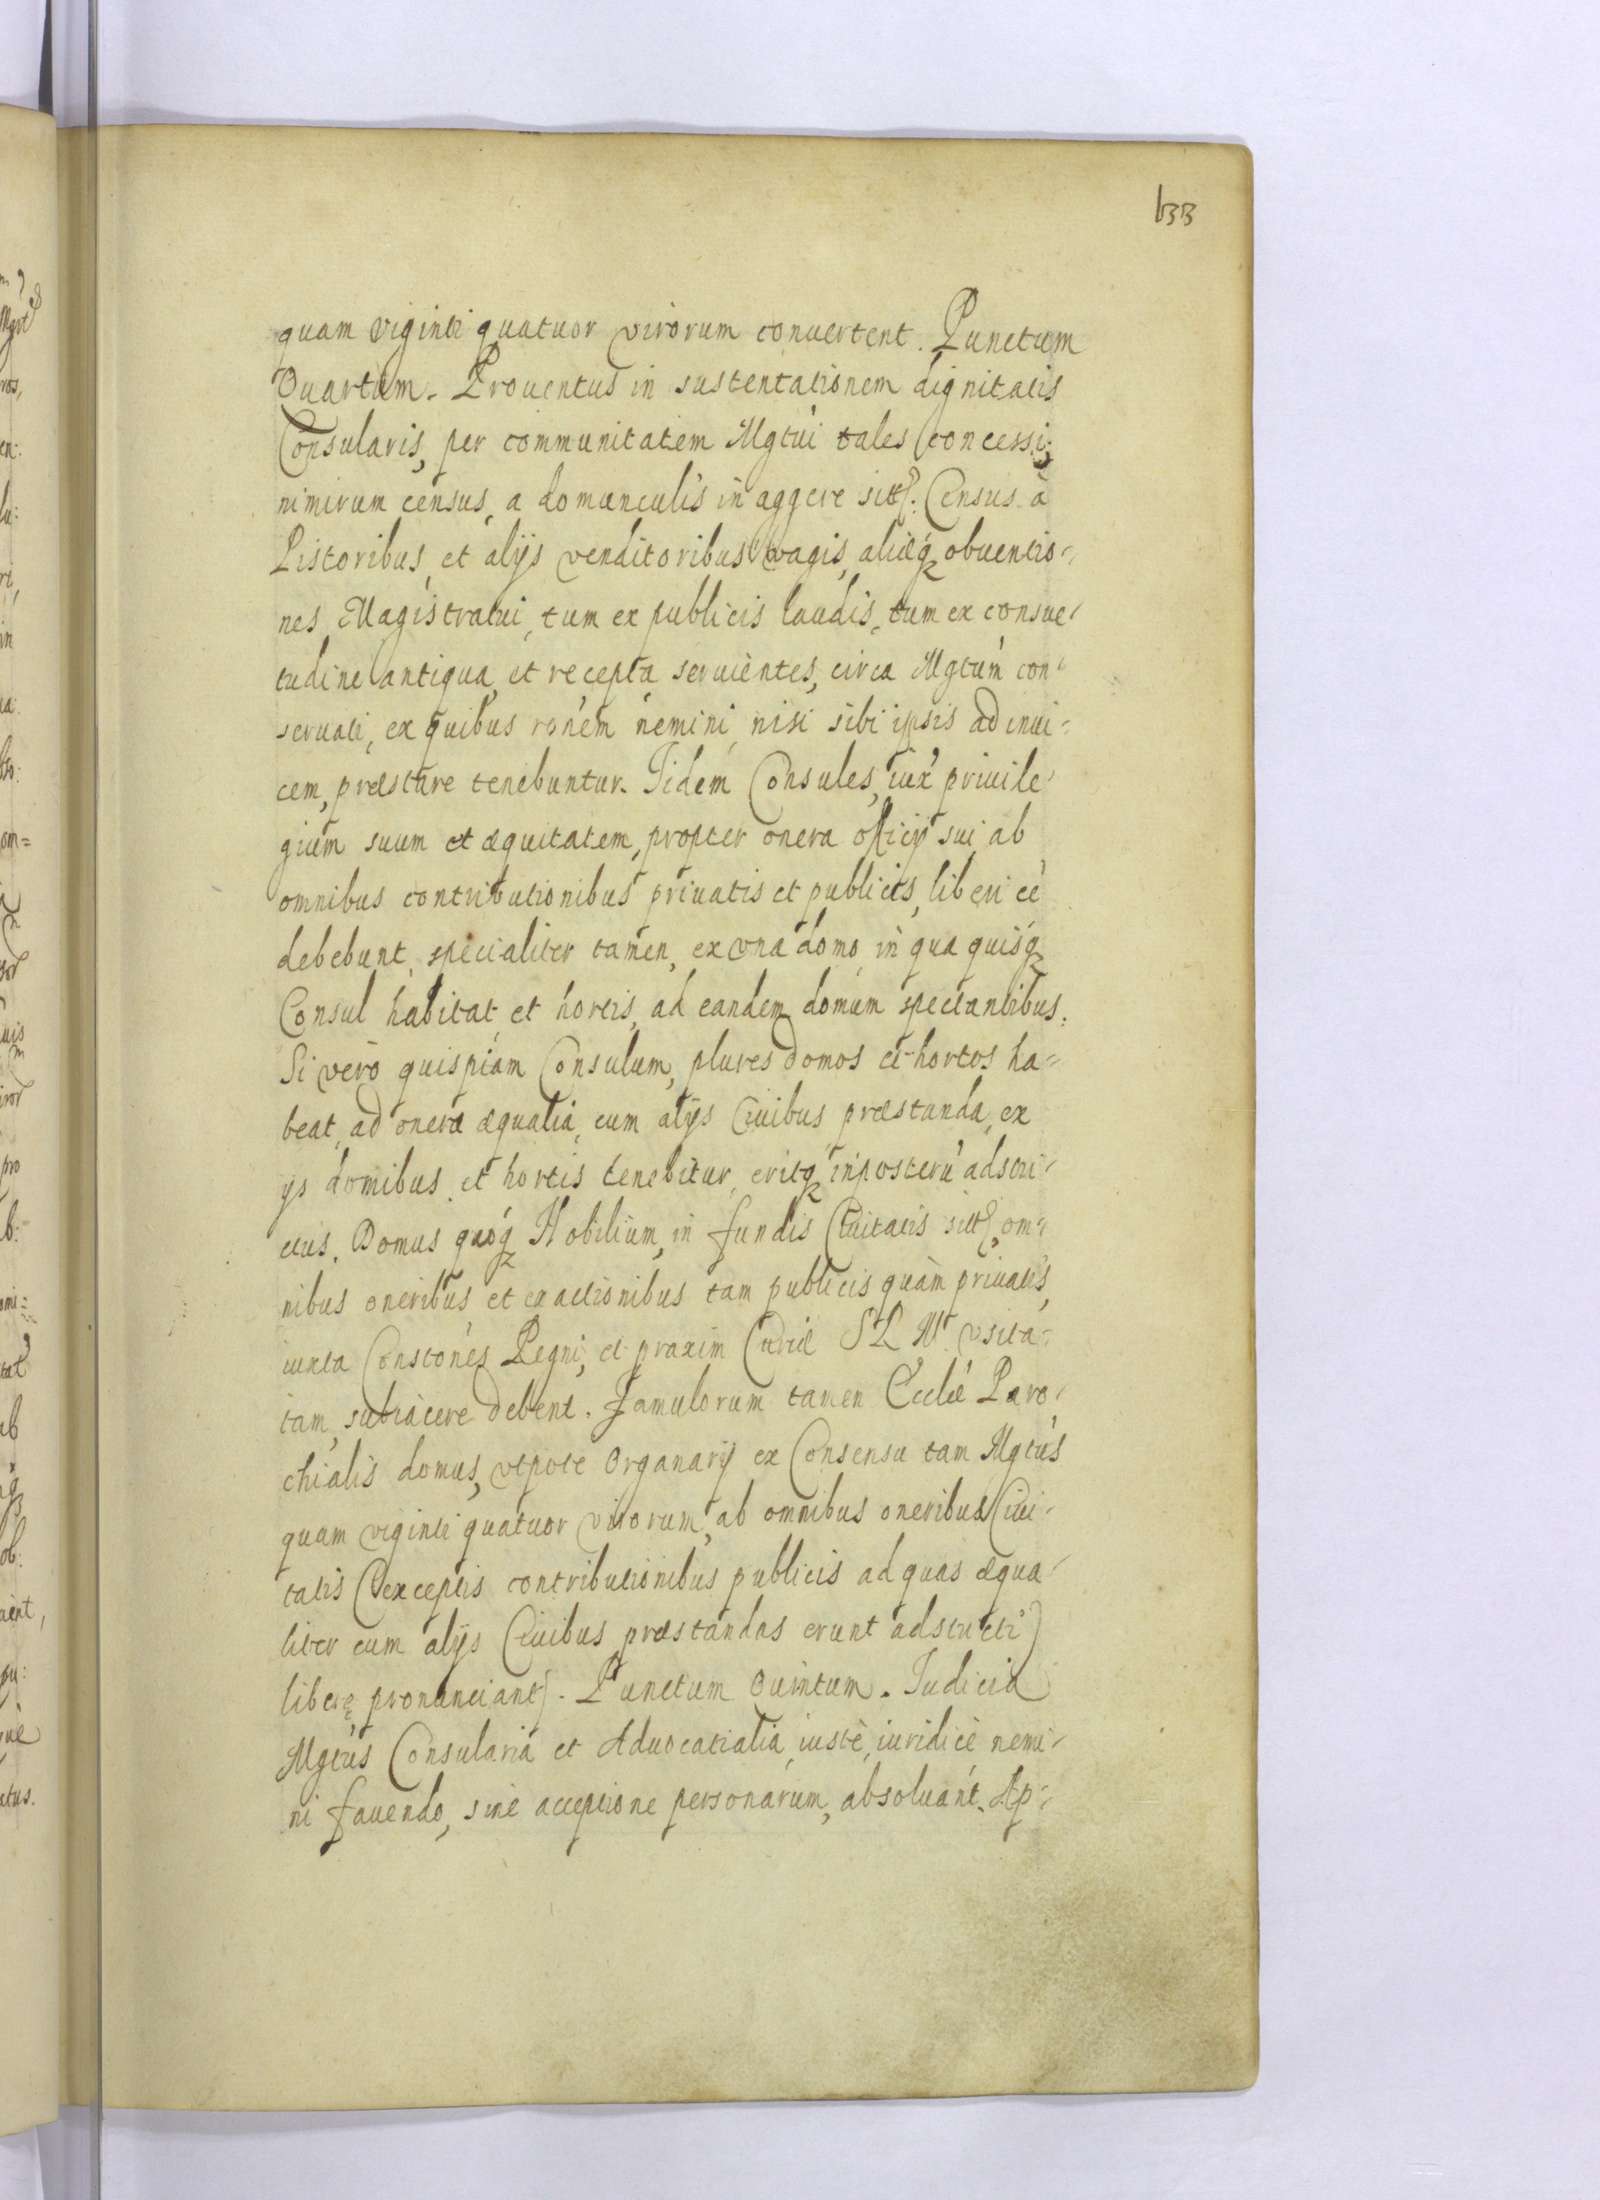 133
quam viginti quatuor virorum conuertent. Punctum
Quartum. Prouentus in sustentationem dignitatis
Consularis, per communitatem Mgtui tales concessi,
nimirum census, a domunculis in aggere sitt. Census à
Pistoribus, et alijs venditoribus vagis, aliæq obuentio-
nes Magistratui, tum ex publicis laudis, tum ex consue-
tudine antiqua, et recepta seruientes, circa Mgtum con-
seruati, ex quibus ronem nemini nisi sibi ipsis ad inui-
cem, præstare tenebuntur. Iidem Consules, iux priuile-
gium suum et æquitatem, propter onera officij sui, ab
omnibus contributionibus priuatis et publicis, liberi eé
debebunt, specialiter tamen, ex vna domo, in qua quisq
Consul habitat, et hortis, ad eandem domum spectantibus.
Si verò quispiam Consulum, plures domos et hortos ha-
beat, ad onera æqualia, cum alijs Ciuibus præstanda, ex
ijs domibus, et hortis tenebitur, eritq inposterú adscri-
ctus. Domus quoq Nobilium, in fundis Ciuitatis sitt, om-
nibus oneribus, et exactionibus tam publicis quàm priuatis,
iuxta Constones Regni, et praxim Curiæ S R Mt. vsita-
tam, subiacere debent. Famulorum tamen Ecclæ Paro-
chialis domus, vtpote Organarij ex Consensu tam Mgtus
quam viginti quatuor virorum, ab omnibus oneribus Ciui-
tatis (exceptis contributionibus publicis ad quas æqua-
liter cum alijs Ciuibus præstandas erunt adstricti)
liberę pronunciant. Punctum Quintum. Iudicia
Mgtus Consularia et Aduocatialia, iustè, iuridicè nemi-
ni fauendo, sine acceptione personarum, absoluant. Ap-